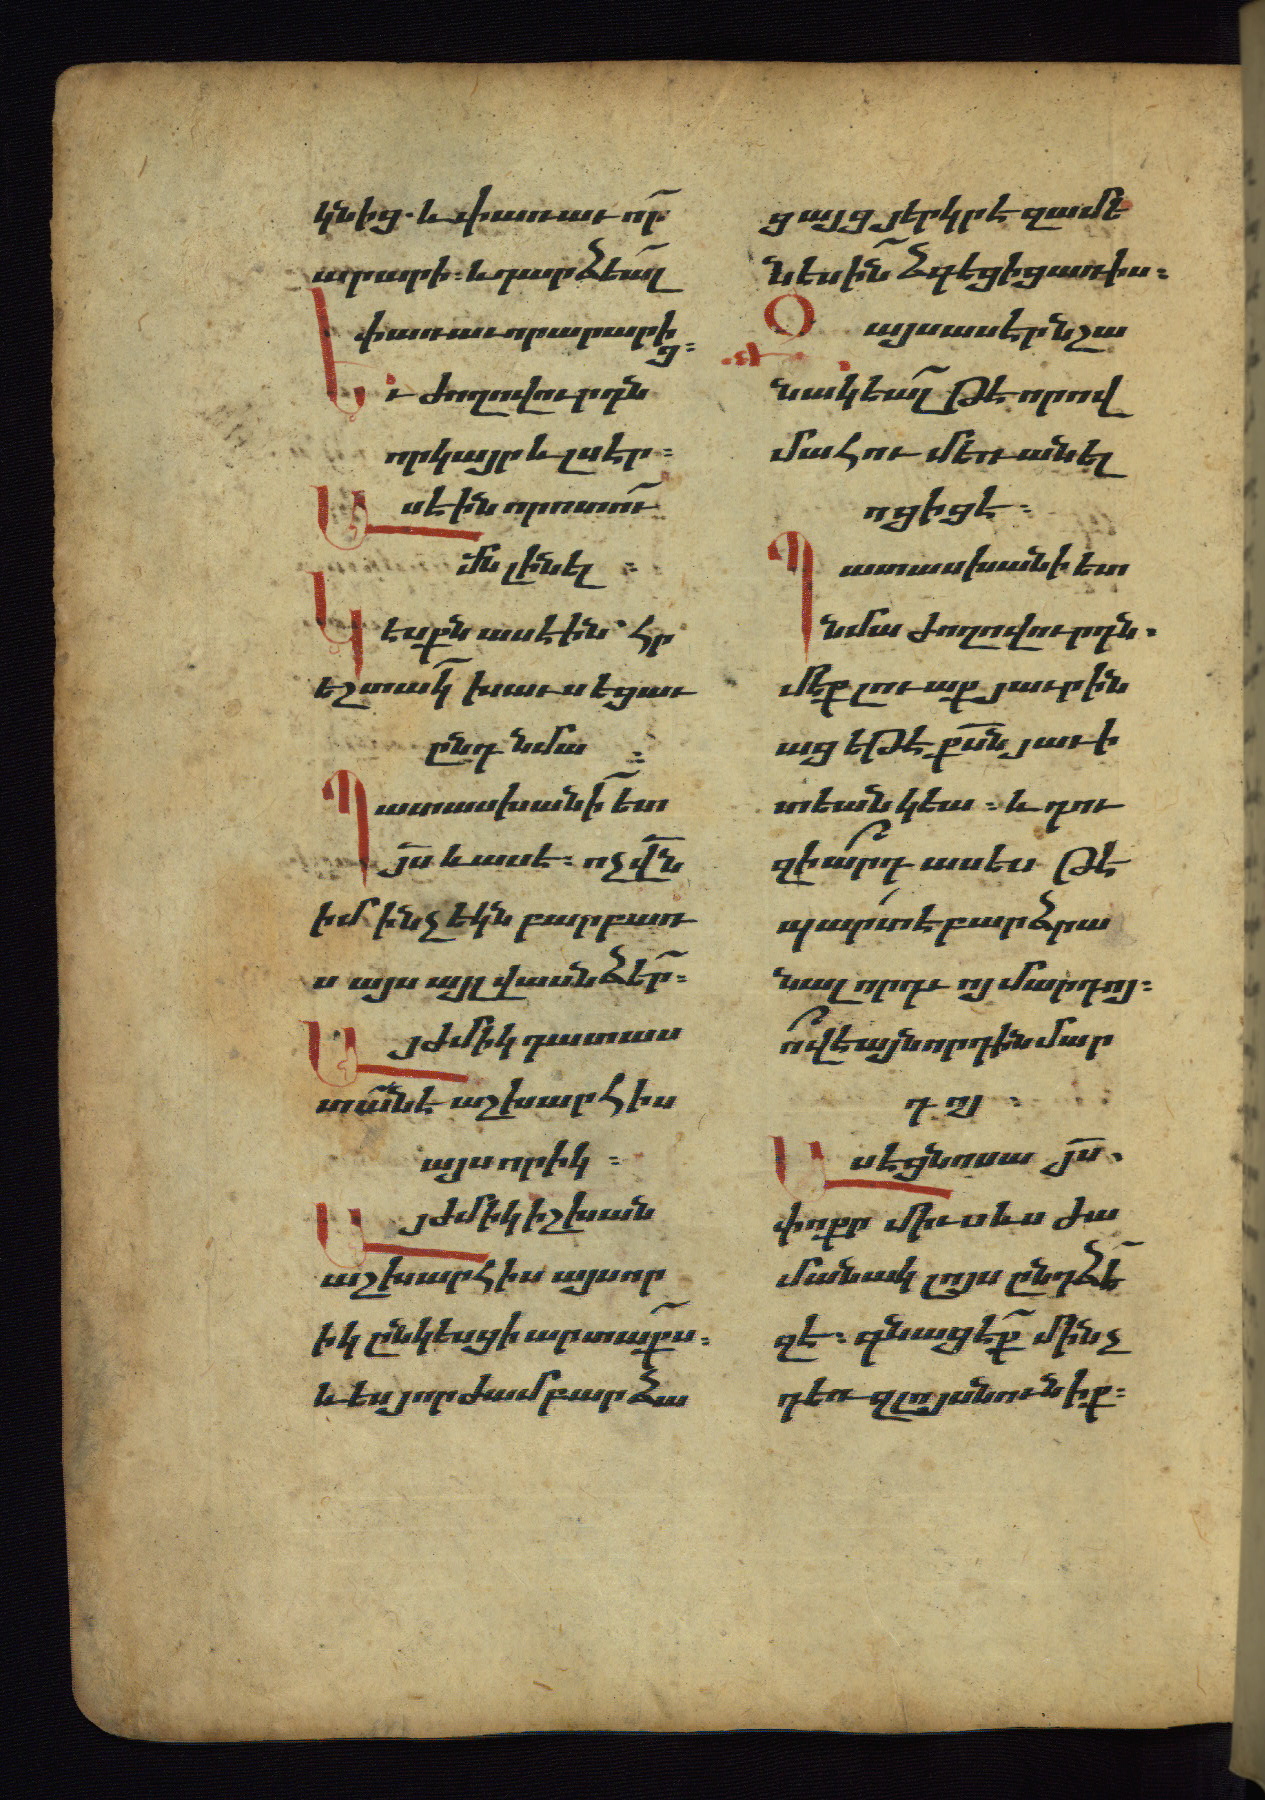 կնից. և փառաւո՞ր
արարի։ և դարձեա՞լ
փառաւոր արարի
ց։
Եւ ժողովուրդն
որ կայր և լսէր։
Ասէին որոտու՞
մն լինել։
Կէսքն ասէին. հր
եշտա՞կ խաւսեցաւ
ընդ նմա։
Պատասխանի՞ ետ
յս և ասե։ ոչ վն
իմ ինչ եկն բարբառ
ս այս այլ վասն ձե՞ր։
Այժմիկ դատաս
տա՞նէ աշխարհիս
այսորիկ։
Այժմիկ իշխան
աշխարհիս այսոր
իկ ընկեսցի արտաք՞ս։
և ես յորժամ բարձա
ցայց յերկրէ զամե
նեսի՞ն ձգեցից առիս։
Զայս ասէր նշա
նակեա՞լ թէ որով
մահու մեռանել
ոցիցէ։
Պատասխանի ետ
նմա ժողովուրդն.
մեք լուաք յաւրին
աց եթէ քսն յաւի
տեան կեա։ և դու
զիա՞րդ ասես թէ
պարտ է բարձրա
նալ որդւոյ մարդոյ։
ո՞վ է այն որդին մար
դոյ։
Ասէ ցնոսա յս.
փոքր միւսևս ժա
մանակ լոյս ընդ ձե՞
զ է։ գնացէք մինչ
դեռ զլոյսն ունիք։